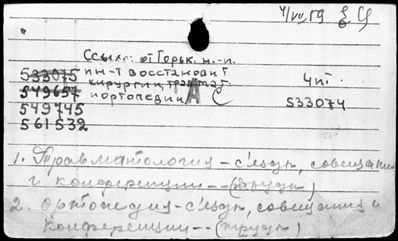 4/VII 59
Ссылк: от Горьк. н.-и.
533075 ин-т восстановит
549657 хирургии, травмат. 4 пг.
549745 и ортопедии С 533074
561532
1. Травматология – съезды, совещания
и конференции – – (труды)
2. Ортопедия – съезды, совещания и
конференции – – (труды)